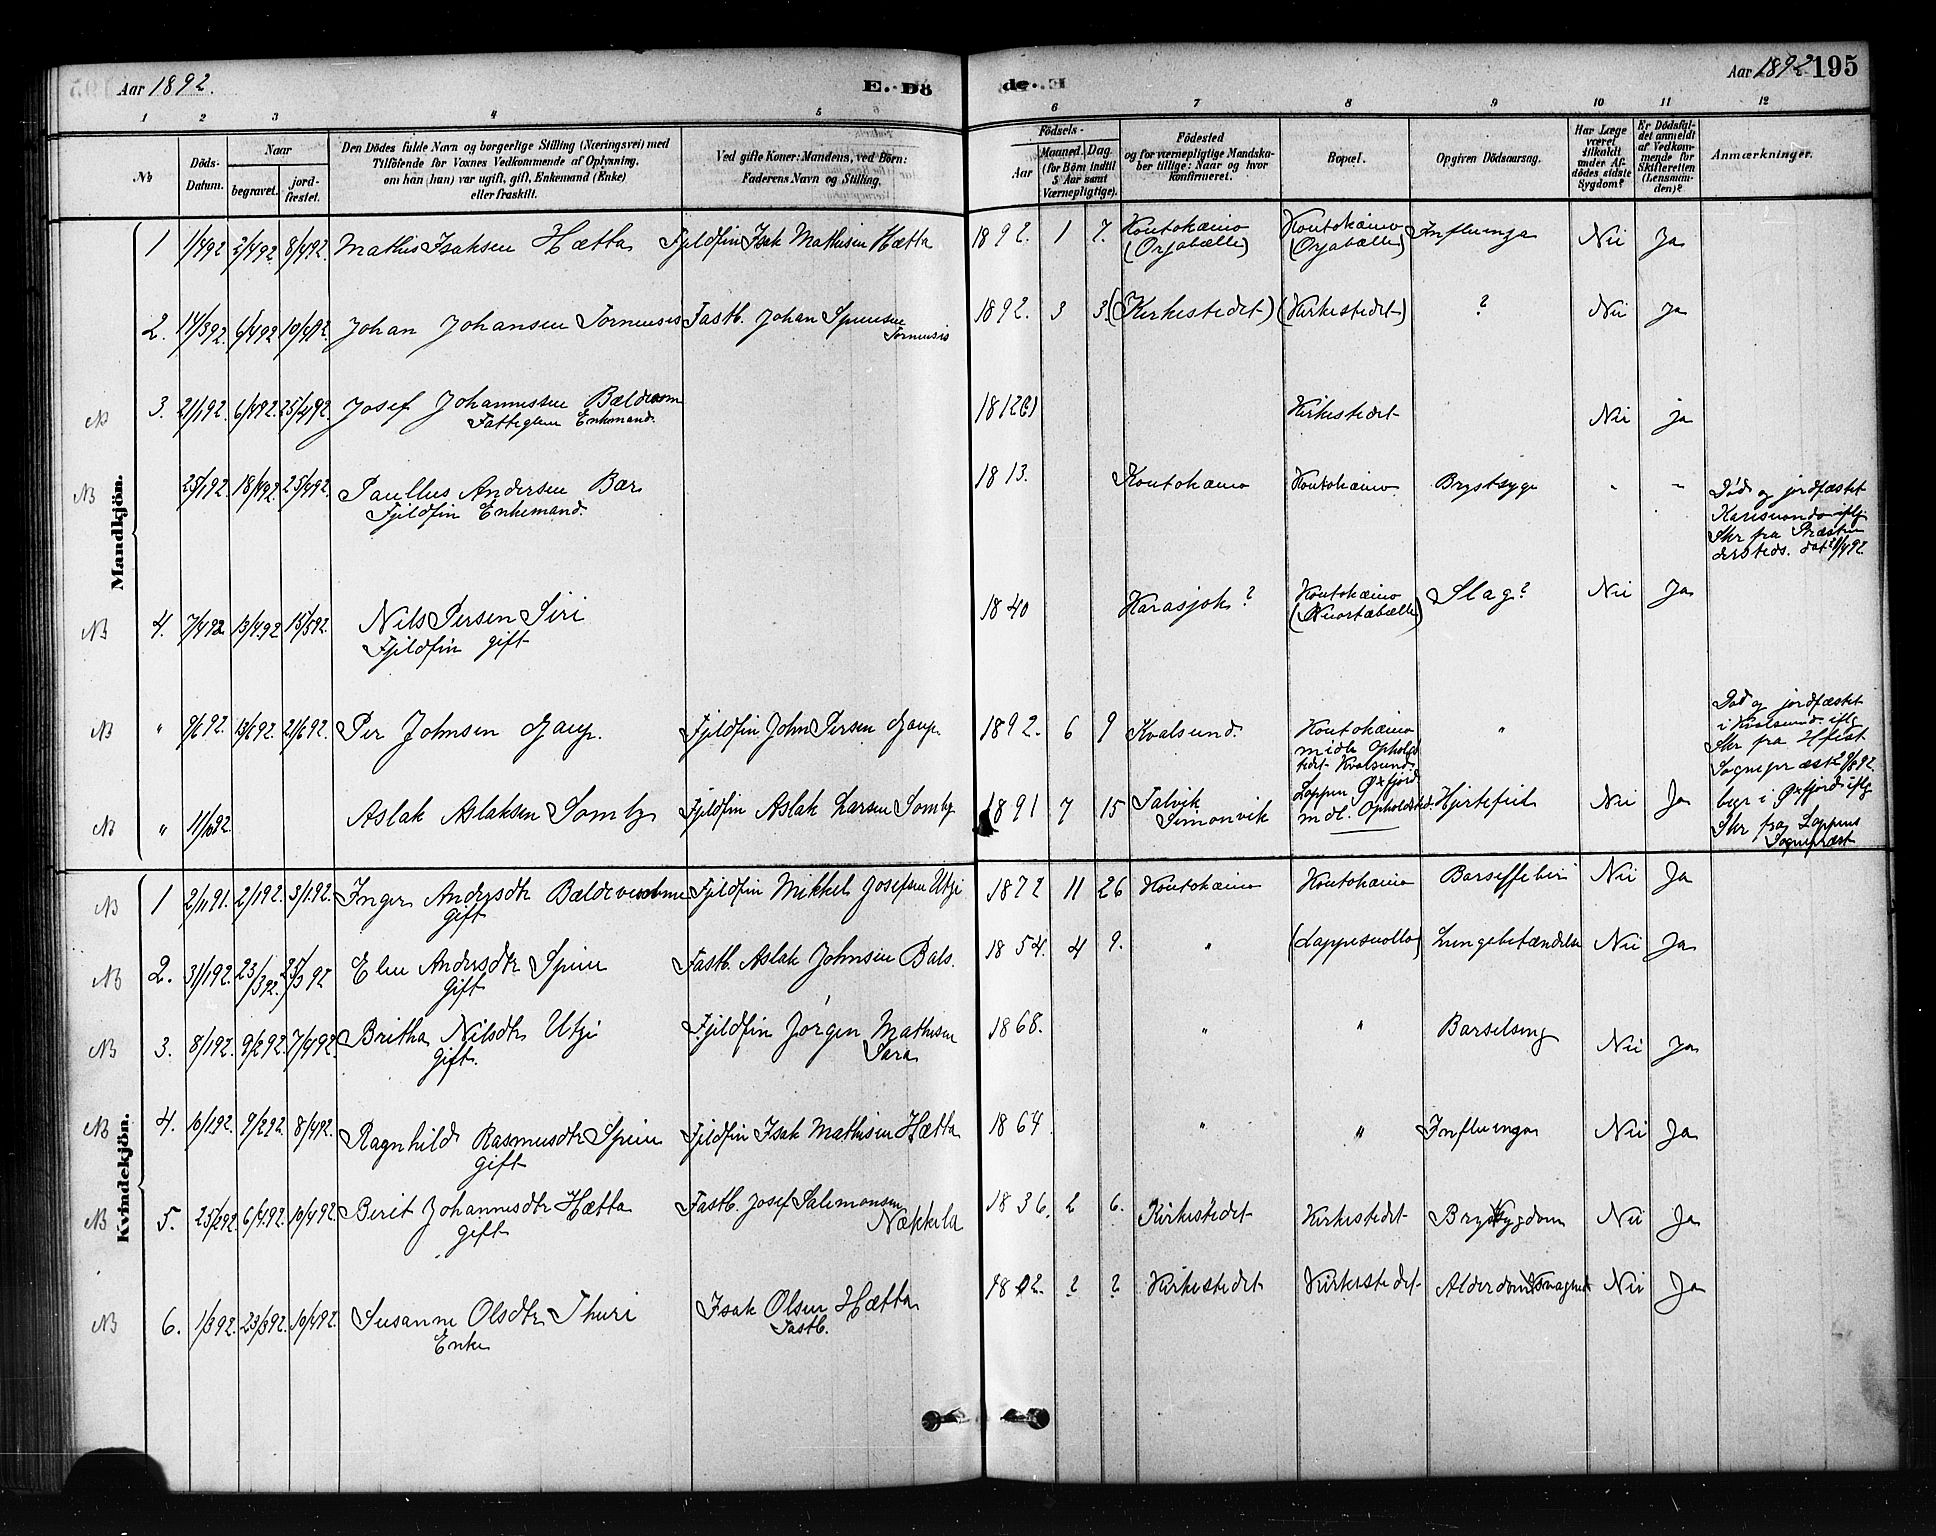 Aar 1892. E. Dö
de. Aar 1892. 195
1 2 3 4 5
6 7 8 9 10 11 12
No Döds-Datum. Naar begravet. jord-fæstet.
Den Dödes fulde Navn og borgerlige Stilling (Næringsvei) med
Tilföiende for Voxnes Vedkommende af Oplysning,
om han (hun) var ugift, gift, Enkemand (Enke)
eller fraskilt.
Ved gifte Koner: Mandens, ved Börn:
Faderens Navn og Stilling.
Födsels-
Aar Maaned. Dag.
(for Börn indtil
5 Aar samt
Værnepligtige).
Födested
og for værnepligtige Mandska-
ber tillige: Naar og hvor
konfirmeret.
Bopæl.
Opgiven Dödsaarsag.
Har Læge
været
tilkaldt
under Af-
dödes sidste
Sygdom?
Er Dödsfal-
det anmeldt
af Vedkom-
mende for
Skifteretten
(Lensman-
den)?
Anmærkninger.
Mandkjön.
1 1/4 92 2/4 92 8/4 92. Mathis Isaksen Hætta Fjeldfin Isak Mathisen Hætta 1892. 1 7. Koutokæino Koutokæino Influenza Nei Ja
(Orjabælle) (Orjabælle)
2. 14/3 92 6/4 92 10/4 92. Johan Johansen Tornensis Fastb. Johan Spensen 1892. 3 3 (Kirkestedet) (Kirkestedet) ? Nei Ja
Tornensis
N 3. 21/1 92. 6/4 92. 25/4 92. Josef Johannessen Bældevom 1812(?) Kirkestedet Nei ja
Fattiglem Enkemand.
NB 25/1 92. 18/4 92. 25/4 92. Paullus Andersen Bær 1813. Koutokæino Koutokæino. Brystsyge " "
Fjeldfin Enkemand.
Död og jordfæstet
Karesuando iflg
Skr fra Præsten
dersteds. dat. 11/4 92.
NB 4. 7/4 92. 13/4 92 15/5 92. Nils Persen Siri 1840 Karasjok? Koutokæino Slag? Nei Ja
Fjeldfin gift (Kuortabælle)
NB " 9/6 92. 13/6 92. 21/6 92. Per Johnsen Gaup. Fjeldfin John Persen Gaup. 1892. 6 9 Kvalsund. Koutokæino "
midle Ophold
stedt Kvalsund.
Död og jordfæstet
i Kvalsund. iflg
Skr fra Hfest
Sognepræst
NB " Aslak Aslaksen Somby Fjeldfin Aslak Larsen Somby 1891 7 15 Talvik Loppen Øxfjord Hjertefeil Nei Ja
Simonvik mdl. Opholdsted.
begr i Øxfjord iflg
Skr fra Loppens
Sognepræst
Kvindekjön.
NB 1 2/11 91. 2/1 92. 3/1 92. Inger Andersdtr Bældevuobme Fjeldfin Mikkel Josefsen Utzi 1872 11 26 Koutokæino Koutokæino Barselfeber Nei Ja
gift
NB 2. 31/1 92. 23/3 92. 25/3 92 Elen Andersdtr Spein Fastb. Aslak Johnsen Bals. 1854. 4 9. " (Lappesuollo) Lungebetændelse Nei Ja
gift
NB 3. 8/1 92. 9/2 92. 7/4 92 Britha Nilsdtr Utzi Fjeldfin Jörgen Mathisen 1868. " " Barselseng Nei Ja
gift. Sara
NB 4. 10/1 92. 9/2 92. 8/4 92. Ragnhild Rasmusdtr Spein Fjeldfin Isak Mathisen Hætta 1864 " " Influenza Nei Ja
gift
NB 5. 25/2 92. 6/4 92. 10/4 92 Berit Johannesdtr Hætta Fastb. Josef Salomonsen 1836. 2 6. Kirkestedet Kirkestedet Brystsygdom Nei Ja
gift Nækkela
NB 6. 1/3 92. 23/3 92. 10/4 92. Susanne Olsdtr Thuri Isak Olsen Hætta 1802. ? ? Kirkestedet Kirkestedet Alderdomssvaghed Nei Ja
Enke Fastb.